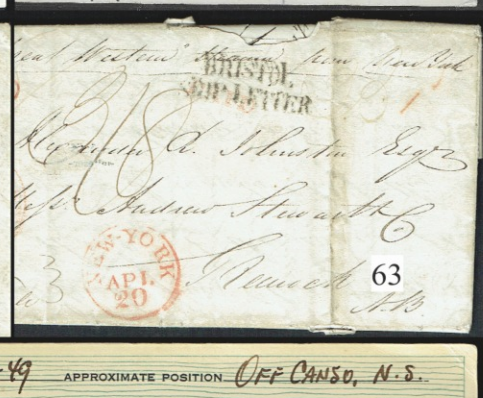 Great Western Steamer from New York
BRISTOL
SHIP LETTER
Alexander L. Johnston Esqr
Messr Andrew Stewart & Co
NEW-YORK
APL
20
Greenock
63
N.B.
-49 APPROXIMATE POSITION OFF CANSO, N.S.